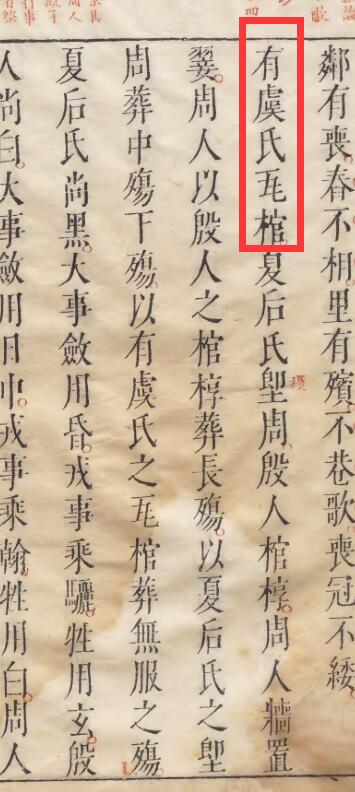 鄰有喪春不相里有殯不巷歌喪冠不緌
有虞氏瓦棺夏后氏堲周殷人棺椁周人牆置
翣周人以殷人之棺椁葬長殤以夏后氏之堲
周葬中殤下殤以有虞氏之瓦棺葬無服之殤
夏后氏尚黑大事斂用昏戎事乘驪牲用玄殷
人尚白大事斂用日中戎事乘翰牲用白周人